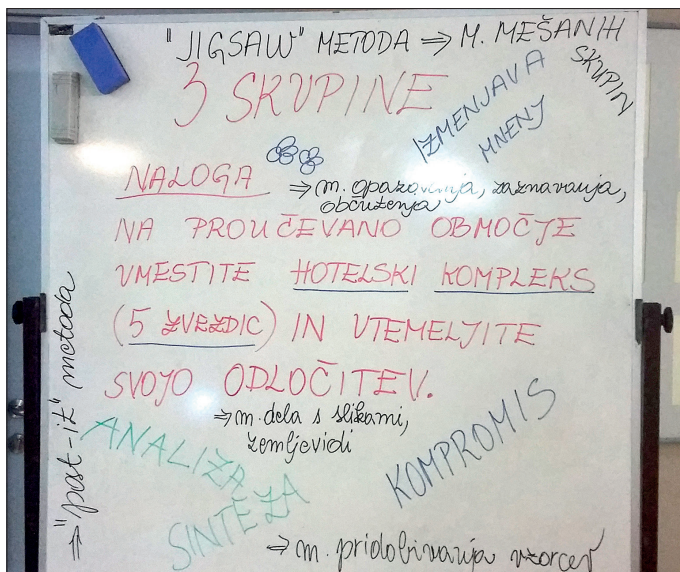 "JIGSAW" METODA ⇒ M. MEŠANIH
SKUPIN
3 SKUPINE
IZMENJAVA
MNENJ
NALOGA
⇒ m. opazovanja, zaznavanja,
občutenja
NA PROUČEVANO OBMOČJE
VMESTITE HOTELSKI KOMPLEKS
(5 ZVEZDIC) IN UTEMELJITE
SVOJO ODLOČITEV.
⇒ m. dela s slikami,
zemljevidi
ANALIZA
SINTEZA
KOMPROMIS
⇒ "post-it" metoda
⇒ m. pridobivanja vzorcev